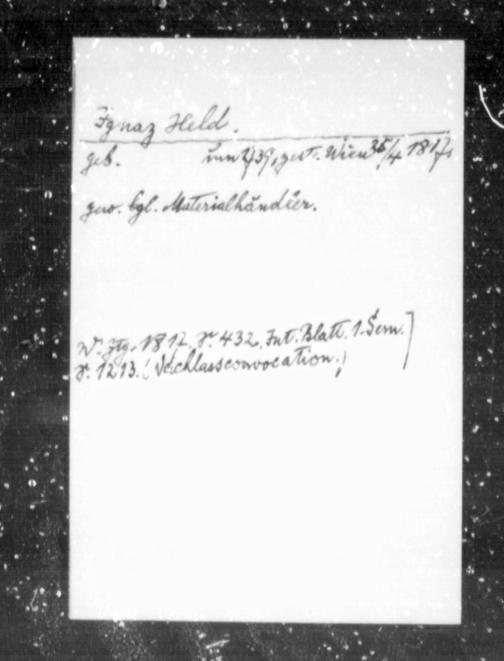 Ignaz Held.
geb. um 1739, gest. Wien /4 1817,
gew. bgl. Materialhändler.
W. Ztg. 1817. S. 432. Int. Blatt. 1. Sem.
S. 1213. (Nachlassconvocation.)